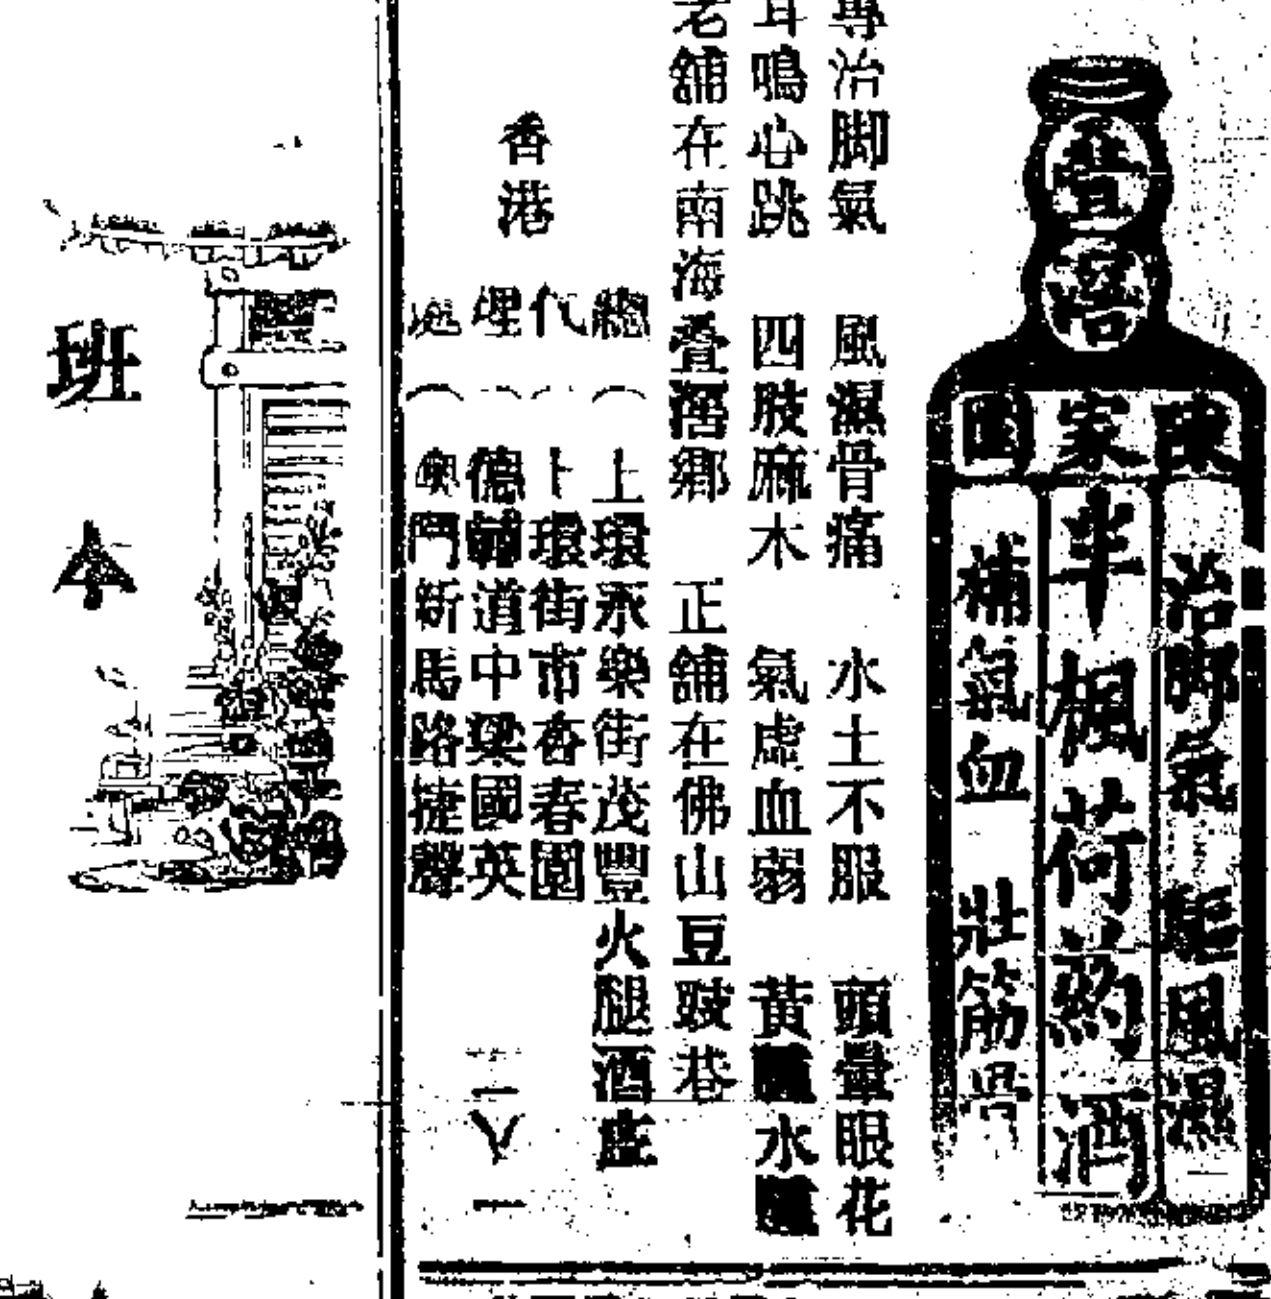 疊滘
陳家園
治脚氣 驅風濕
半楓荷葯酒
補氣血 壯筋骨
專治脚氣 風濕骨痛 水土不服 頭暈眼花
耳鳴心跳 四肢麻木 氣虛血弱 黃 水
老舖在南海疊滘鄉 正舖在佛山豆豉巷
香港
總(上環永樂街茂豐火腿酒庄
代(上環街市香春園
理(德輔道中梁國英 二八一
處(澳門新馬路捷聲
班本